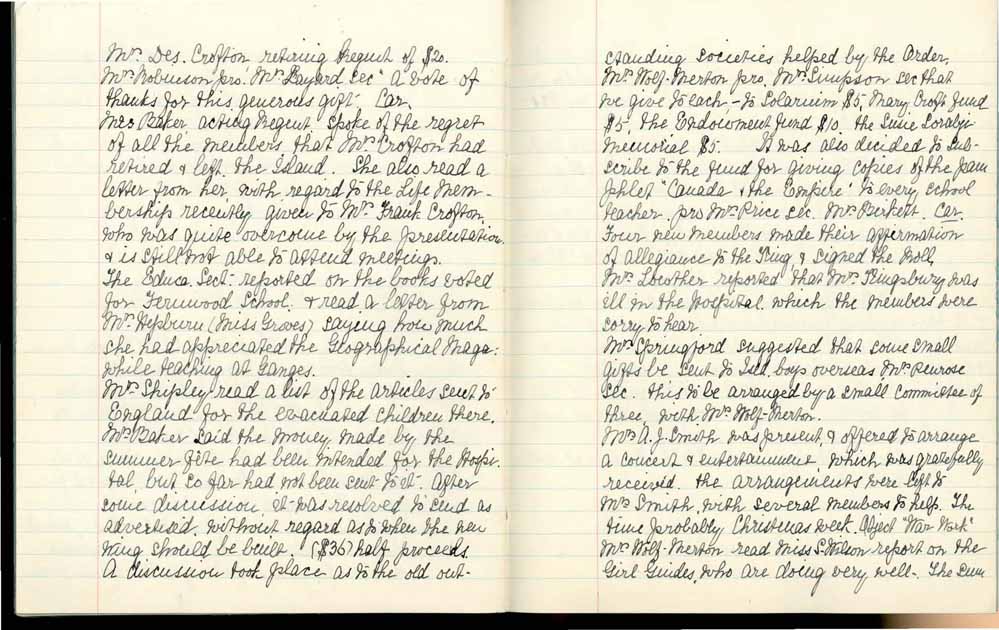 Mrs. Des. Crofton, retiring Regent of $20.
Mrs Robinson, pro. Mrs Layard sec. a vote of
thanks for this generous gift. Car.
Mrs Baker, acting Regent spoke of the regret
of all the members that Mrs Crofton had
retired & left the Island. She also read a
letter from her with regard to the Life Mem-
bership recently given to Mrs. Frank Crofton,
who was quite overcome by the presentation
& is still not able to attend meetings.
The Educa. Sect: reported on the books voted
for Fernwood School. & read a letter from
Mrs. Hepburn (Miss Groves) saying how much
she had appreciated the Geographical Maga:
while teaching at Ganges.
Mrs Shipley read a list of the articles sent to
England for the evacuated children there.
Mrs Baker said the money made by the
summer fête had been intended for the Hospi-
tal, but so far had not been sent to it. After
some discussion, it was resolved to send as
advertised, without regard as to when the new
wing should be built. ($36) half proceeds
A discussion took place as to the old out-
standing societies helped by the Order,
Mrs. Wolf-Merton pro. Mrs. Simpson sec that
we give to each, - to Solarium $5, Mary Croft Fund
$5. the Endowment Fund $10. the
Memorial $5. It was also decided to sub-
scribe to the fund for giving copies of the pam
phlet "Canada & the Empire" to every school
teacher. pro Mrs Price sec. Mrs. Birkett. Car.
Four new members made their affirmation
of allegiance to the King & signed the Roll.
Mrs. Lowther reported that Mrs Kingsbury was
ill in the Hospital, which the members were
sorry to hear.
Mrs Springford suggested that some small
gifts be sent to Isld. boys overseas Mrs Penrose
sec. this to be arranged by a small committee of
three, with Mrs. Wolf-Merton.
Mrs A. J. Smith was present, & offered to arrange
a concert & entertainment, which was gratefully
received. the arrangements were left to
Mrs Smith, with several members to help. The
time probably Christmas week. Object "War Work"
Mrs. Wolf-Merton read Miss S. Wilson report on the
Girl Guides, who are doing very well-. The